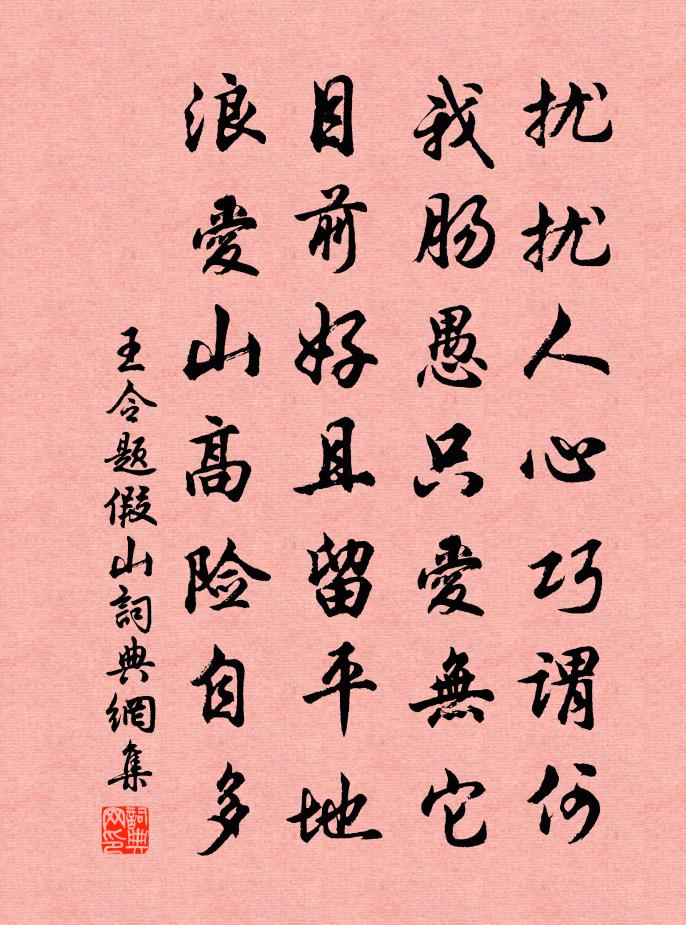 扰扰人心巧谓何
我肠愚只愛無它
目前好且留平地
浪愛山高险自多
王令题假山詞典網集
詞典网印